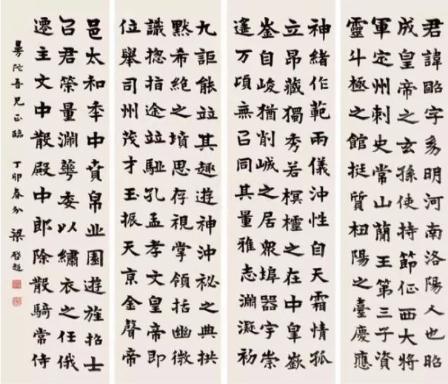 君諱昭字多明河南洛陽人也昭
成皇帝之玄孫使持節征西大將
軍定州刺史常山蘭王第三子資
靈斗極之館挺質杻陽之臺慶應
神緒作範兩儀沖性自天霜情孤
立昂藏獨秀若之在中皋嶔
崟自峻猶削成之居衆埠器宇崇
邃万頃無以同其量雅志淵凝初
九詎能並其趣遊神沖祕之典拱
默希絶之墳思存視掌領括百
識揔指途並駈孔孟孝文皇帝即
位舉司州茂才玉振天京金聲帝
邑太和年中賁帛丘園遊旌招士
召君榮量淵華委以繡衣之任俄
遷主文中散殿中郎除散騎常侍
曼陀吾兄正臨 丁卯春分 梁啓超